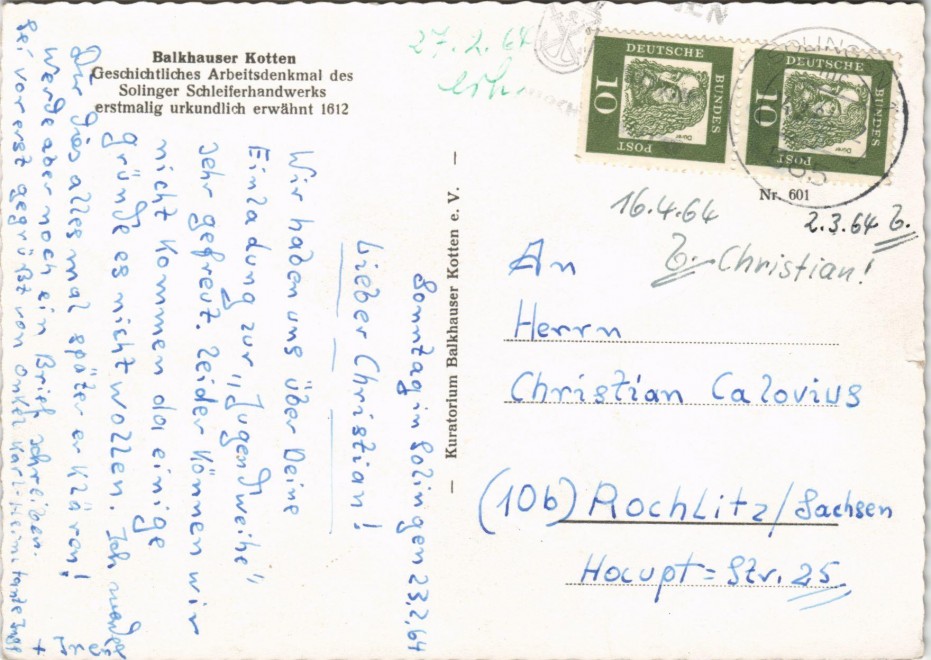 Balkhauser Kotten
Geschichtliches Arbeitsdenkmal des
Solinger Schleiferhandwerks
erstmalig urkundlich erwähnt 1612
Sonntag in Solingen 23.2.64
Lieber Christian!
Wir haben uns über Deine
Einladung zur "Jugendweihe"
sehr gefreut. Leider können wir
nicht kommen da einige
Gründe es nicht wollen. Ich werde
Dir dies alles mal später erklären!
Werde aber noch ein Brief schreiben.
Sei vorerst gegrüßt von Onkel Karl-Heinz + Tante
— Kuratorium Balkhauser Kotten e. V. —
27.2.64
erh.
DEUTSCHE
BUNDES
POST
10
Dürer
DEUTSCHE
BUNDES
POST
10
Dürer
Nr. 601
16.4.64
2.3.64 b.
b. Christian!
An
Herrn
Christian Calovius
(10b) Rochlitz/Sachsen
Haupt-Str. 25